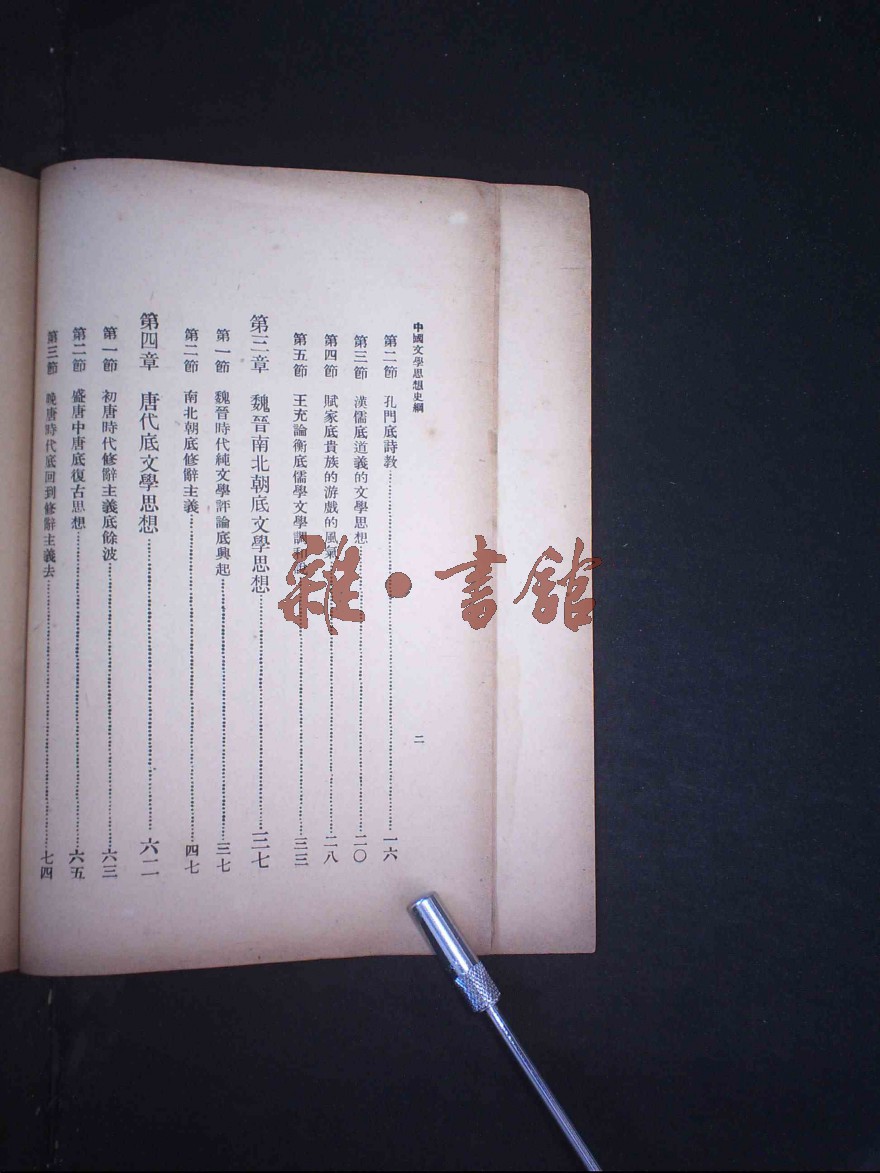 中國文學思想史綱
二
第二節 孔門底詩敎…………一六
第三節 漢儒底道義的文學思想…………二〇
第四節 賦家底貴族的游戲的風氣…………二八
第五節 王充論衡底儒學文學調和…………三三
第三章 魏晉南北朝底文學思想…………三七
第一節 魏晉時代純文學評論底興起…………三七
第二節 南北朝底修辭主義…………四七
第四章 唐代底文學思想…………六二
第一節 初唐時代修辭主義底餘波…………六三
第二節 盛唐中唐底復古思想…………六五
第三節 晚唐時代底回到修辭主義去…………七四
雜·書館